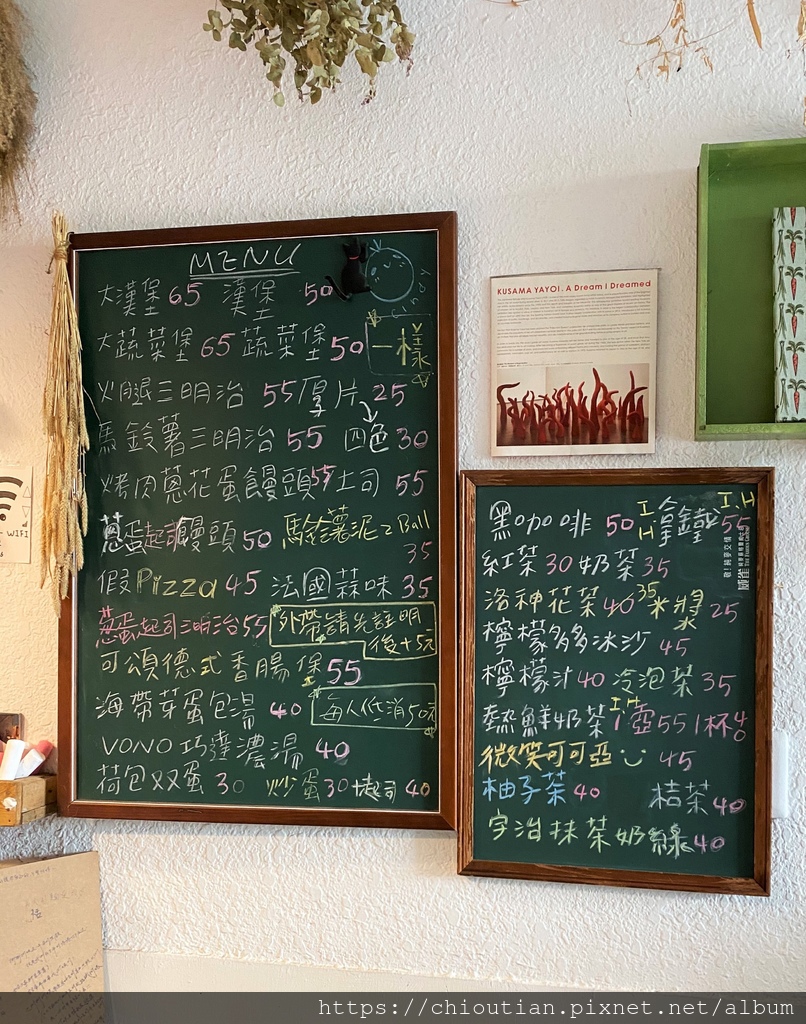 MENU
大漢堡 65 漢堡 50
大蔬菜堡 65 蔬菜堡 50 一樣
火腿三明治 55 厚片 25
馬鈴薯三明治 55 四色 30
烤肉蔥花蛋饅頭 55 土司 55
蔥蛋起司饅頭 50 馬鈴薯泥2Ball
35
假Pizza 45 法國蒜味 35
蔥蛋起司三明治 55 外帶請先註明
後+5元
可頌德式香腸堡 55
海帶芽蛋包湯 40 每人低消50元
VONO巧達濃湯 40
荷包双蛋 30 炒蛋 30 起司 40
KUSAMA YAYOI . A Dream I Dreamed
黑咖啡 50 I.H 拿鐵 55 I.H
紅茶 30 奶茶 35
洛神花茶 40 35 米漿 25
檸檬多多冰沙 45
檸檬汁 40 冷泡茶 35
熱鮮奶茶 I.H 1壺55 1杯40
微笑可可亞 45
柚子茶 40 桔茶 40
宇治抹茶奶綠 40
WIFI
https://chioutian.pixnet.net/album